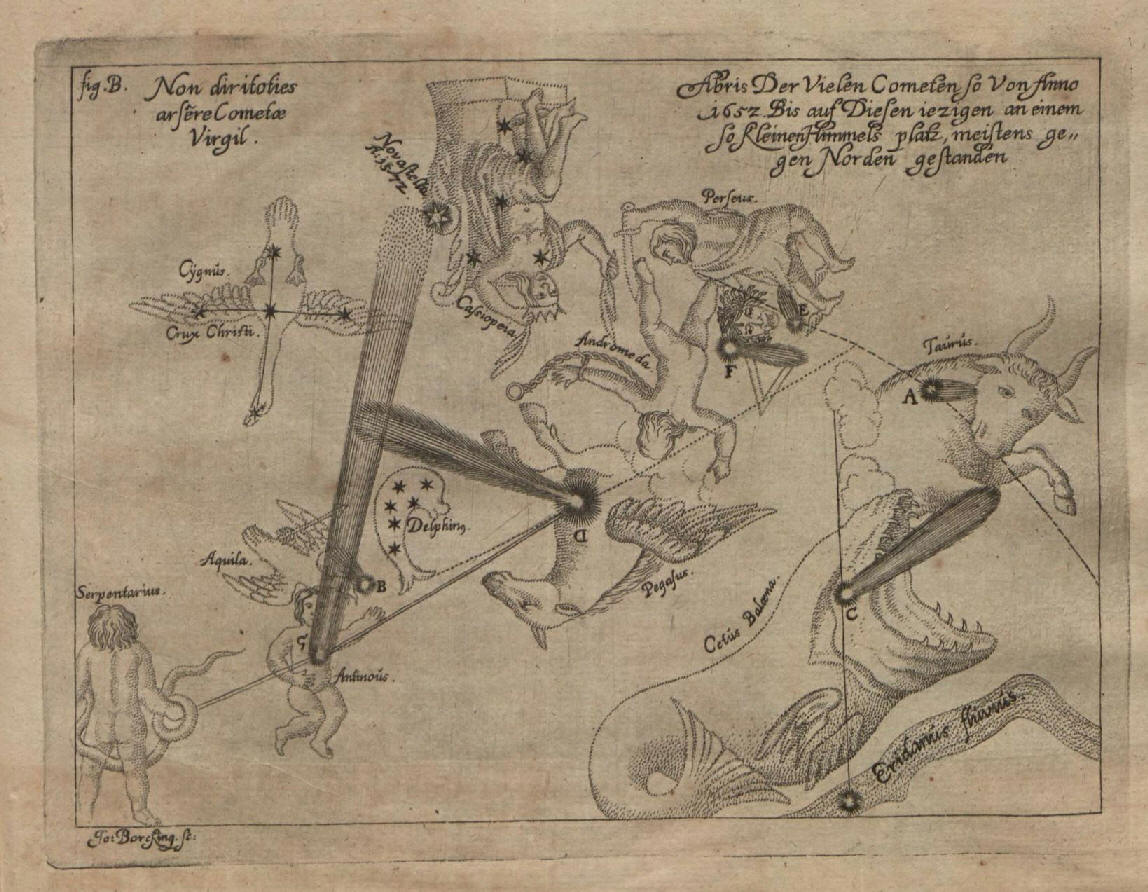 fig. B.
Non diri toties
arsēre Cometæ
Virgil.
Abris Der Vielen Cometen so Von Anno
1652 Bis auf Diesen iezigen an einem
so Kleinen Himmels platz, meistens ge„
gen Norden gestanden
Nova stella
A. 1572.
Perseus.
Cÿgnus.
Crux Christi.
Cassiopeia
Andromeda
E
F
Taürüs.
A
Delphinq
Aquila.
B
D
Pegasus.
Serpentarius.
C
Cetüs Balena.
Antinoüs.
Eridanüs flüviüs.
Jo: Borcking. sc: